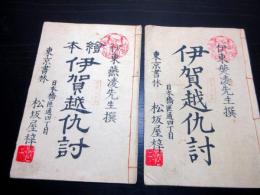 伊東燕凌先生撰
伊賀越仇討
日本橋区通四丁目
東京書林 松坂屋梓
伊東燕凌先生撰
繪本 伊賀越仇討
日本橋区通四丁目
東京書林 松坂屋梓